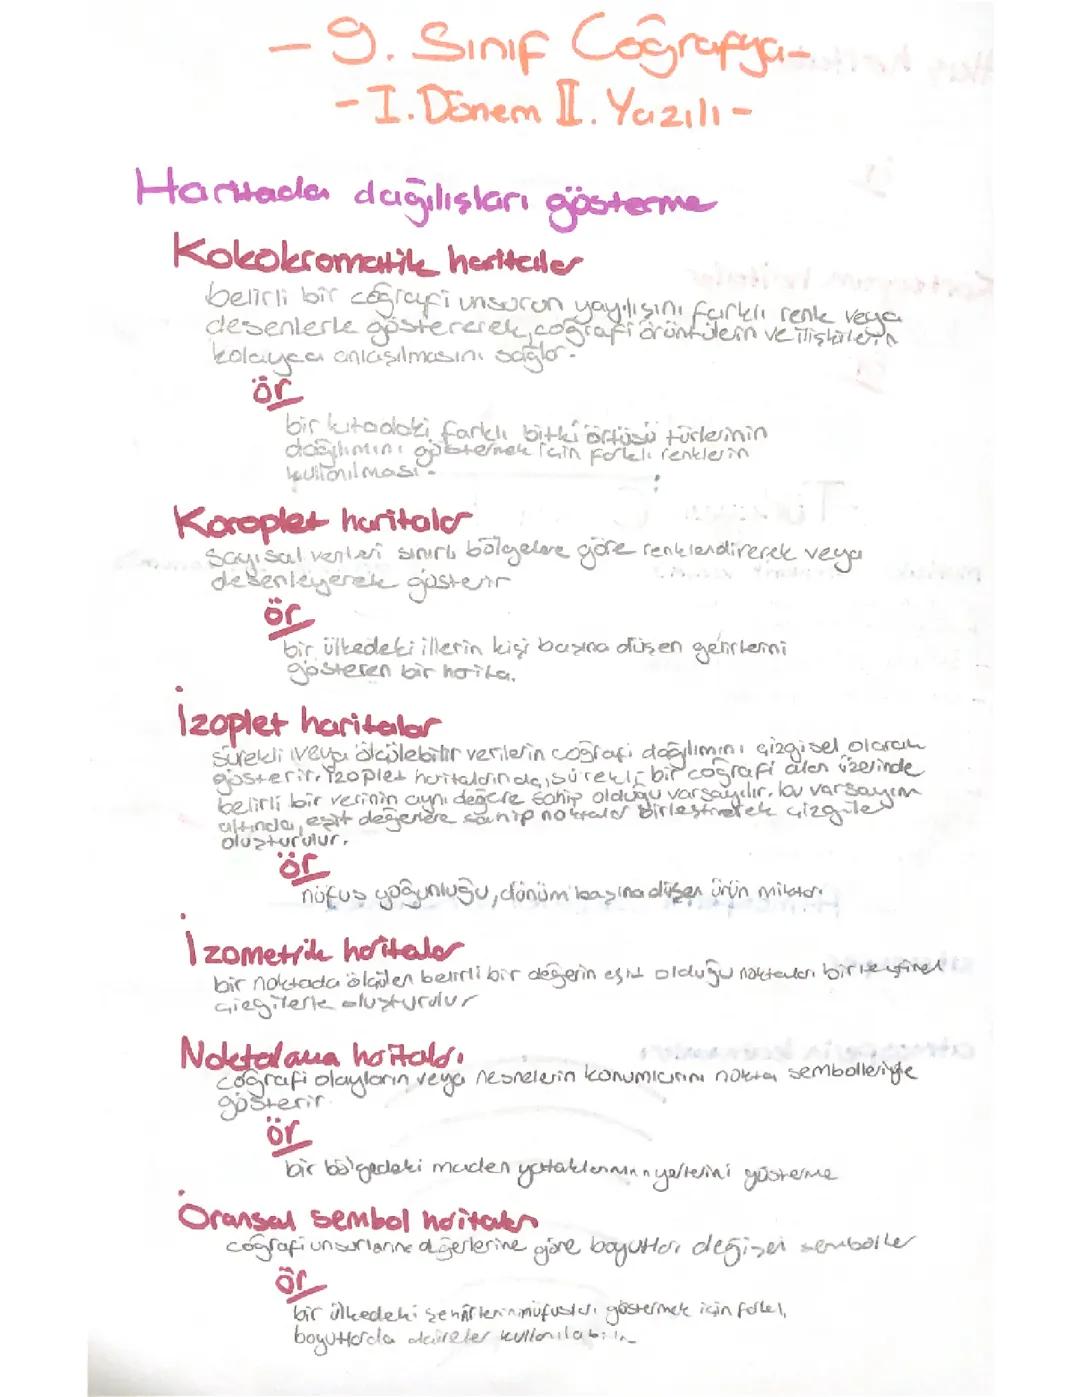 - 9. Sınıf Coğrafya -
- I. Dönem II. Yazılı -
Haritada dağılışları gösterme
Kokokromatik haritalar
belirli bir coğrafi unsurun yayılışını farklı renk veya
desenlerle göstererek, coğrafi örüntülerin ve ilişkilerin
kolayca anlaşılmasını sağlar.
ör
bir kıtadaki farklı bitki örtüsü türlerinin
dağılımını göstermek için farklı renklerin
kullanılması.
Koroplet haritalar
sayısal verileri sınırlı bölgelere göre renklendirerek veya
desenleyerek gösterir
ör
bir ülkedeki illerin kişi başına düşen gelirlerini
gösteren bir harita.
İzoplet haritalar
sürekli veya ölçülebilir verilerin coğrafi dağılımını çizgisel olarak
gösterir. İzoplet haritalarında, sürekli bir coğrafi alan üzerinde
belirli bir verinin aynı değere sahip olduğu varsayılır. bu varsayım
altında, eşit değerlere sahip noktalar birleştirilerek çizgiler
oluşturulur.
ör
nüfus yoğunluğu, dönüm başına düşen ürün miktarı
İzometrik haritalar
bir noktada ölçülen belirli bir değerin eşit olduğu noktaları birleştiren
çizgilerle oluşturulur
Noktalama haritaları
coğrafi olayların veya nesnelerin konumlarını nokta sembolleriyle
gösterir
ör
bir bölgedeki maden yataklarının yerlerini gösterme
Oransal sembol haritaları
coğrafi unsurların değerlerine göre boyutları değişen semboller
ör
bir ülkedeki şehirlerin nüfusları göstermek için farklı
boyutlarda daireler kullanılabilir